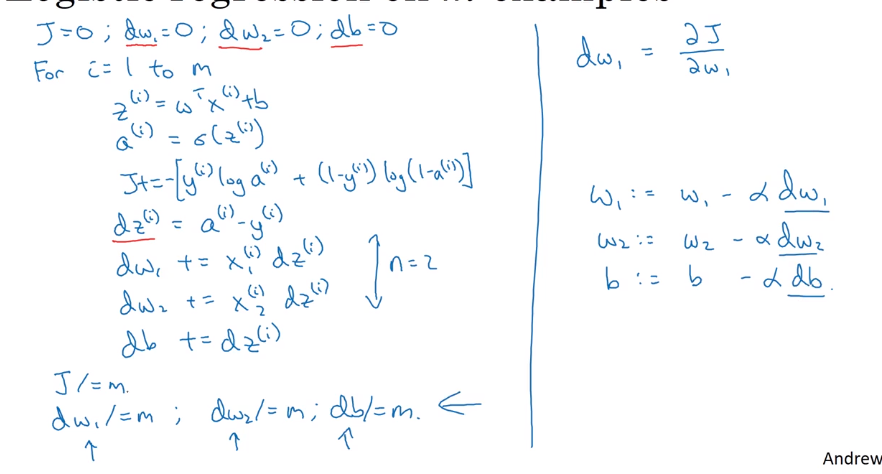 Logistic regression on m examples
J=0; dw₁=0; dw₂=0; db=0
For i=1 to m
z⁽ⁱ⁾=ωᵀx⁽ⁱ⁾+b
a⁽ⁱ⁾ = σ(z⁽ⁱ⁾)
J+=-[y⁽ⁱ⁾log a⁽ⁱ⁾ + (1-y⁽ⁱ⁾)log(1-a⁽ⁱ⁾)]
dz⁽ⁱ⁾ = a⁽ⁱ⁾-y⁽ⁱ⁾
dw₁ += x₁⁽ⁱ⁾ dz⁽ⁱ⁾
dw₂ += x₂⁽ⁱ⁾ dz⁽ⁱ⁾
n=2
db += dz⁽ⁱ⁾
J/=m.
dw₁/=m; dw₂/=m; db/=m. ←
↑ ↑ ↑
dw₁ = ∂J/∂w₁
ω₁ := ω₁ - α dw₁
ω₂ := ω₂ - α dw₂
b := b - α db.
Andrew